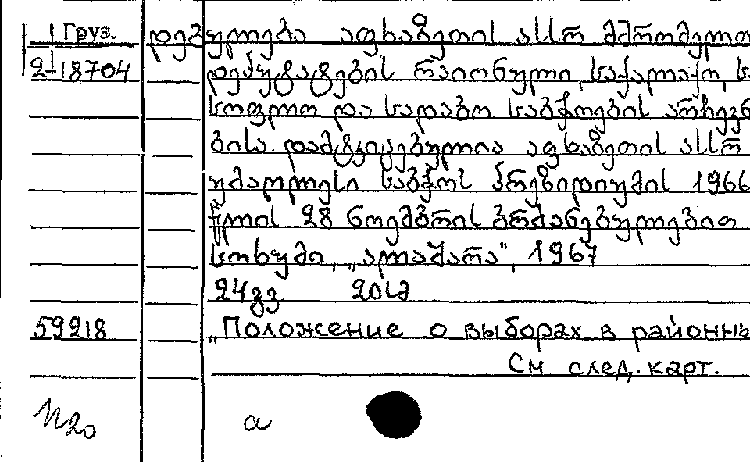 Груз. დებულება აფხაზეთის ასსრ მშრომელთ
2-18704 დეპუტატების რაიონული, საქალაქო, ს
სოფლო და სადაბო საბჭოების არჩევნ
ბისა დამტკიცებულია აფხაზეთის ასსრ
უმაღლესი საბჭოს პრეზიდიუმის 1966
წლის 28 ნოემბრის ბრძანებულებით
სოხუმი, „ალაშარა", 1967
24გვ 20სმ
59218 „Положение о выборах в районны
См след. карт.
а